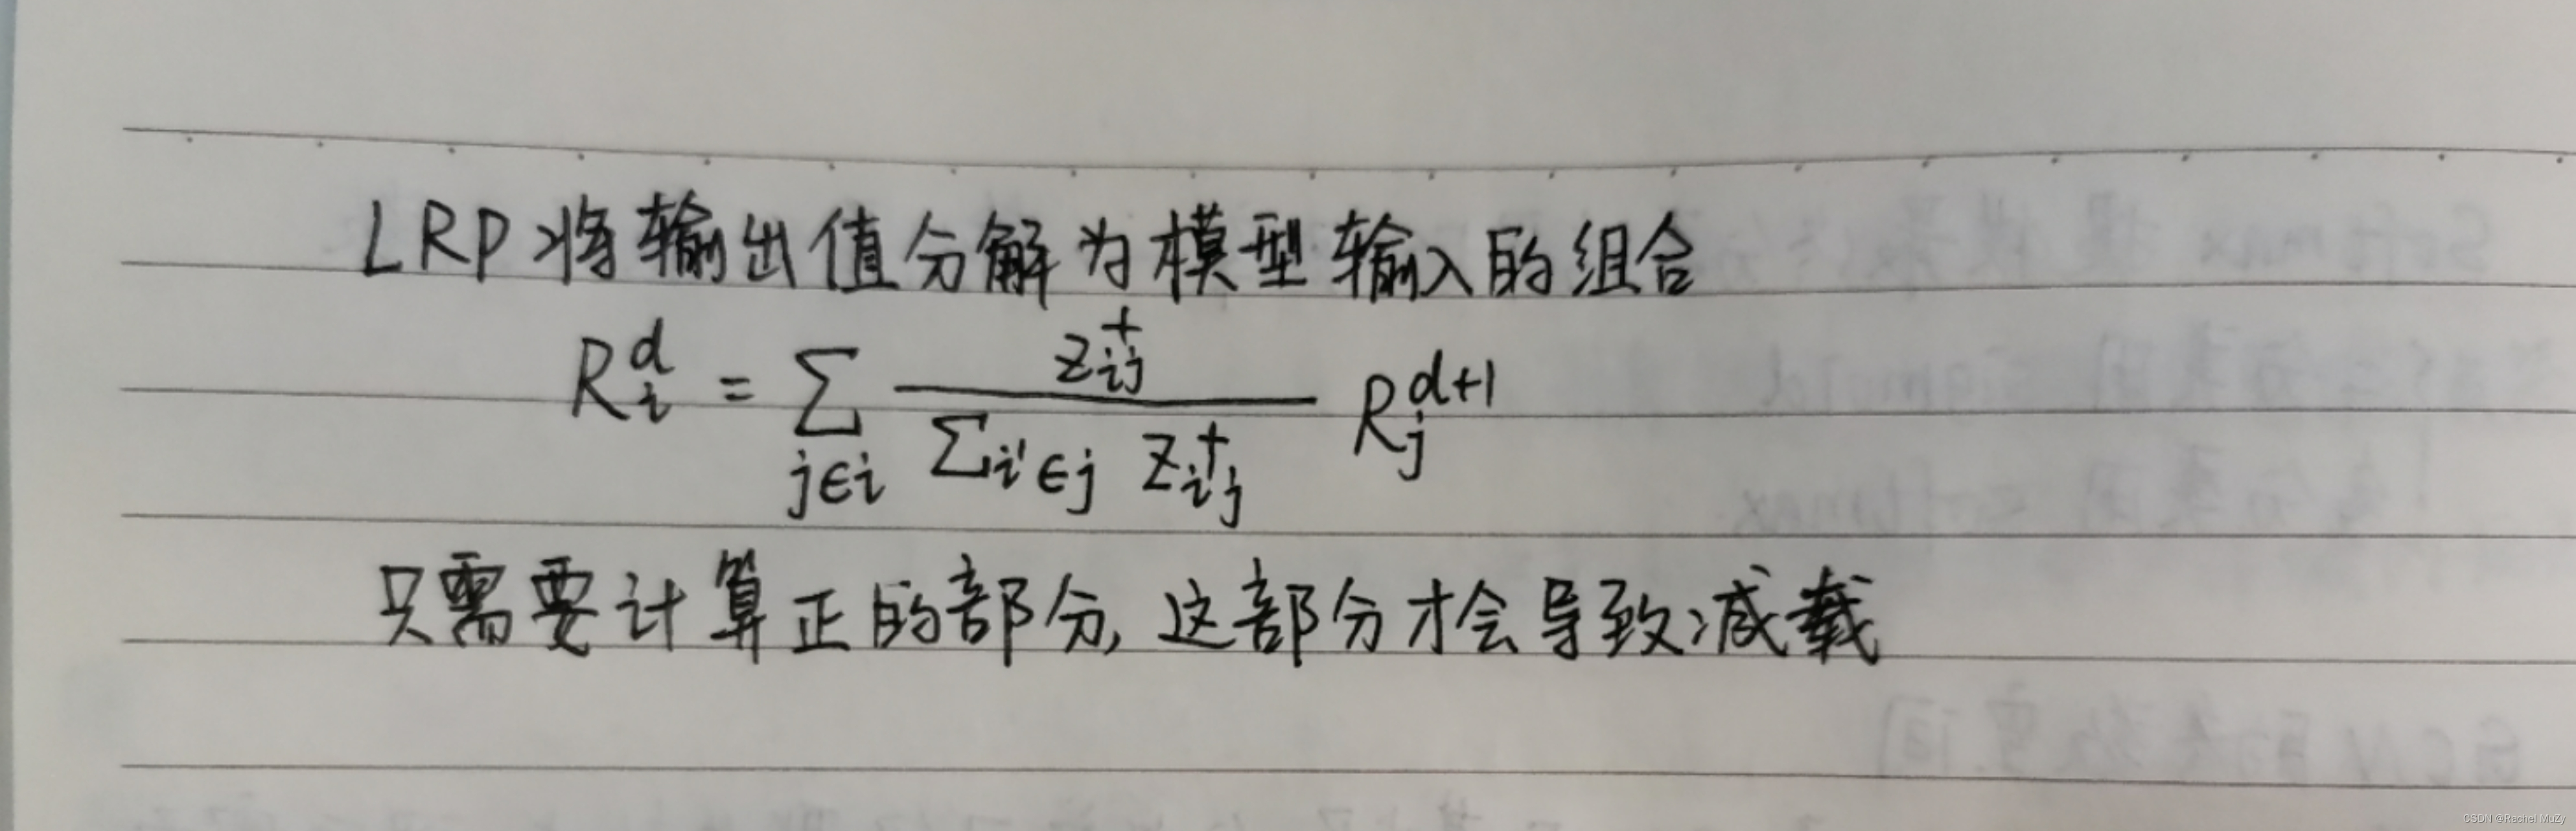 LRP将输出值分解为模型输入的组合
R_i^d = \sum_{j∈i} \frac{z_{ij}^+}{\sum_{i'∈j} z_{i'j}^+} R_j^{d+1}
只需要计算正的部分,这部分才会导致减载
CSDN @Rachel MuZy